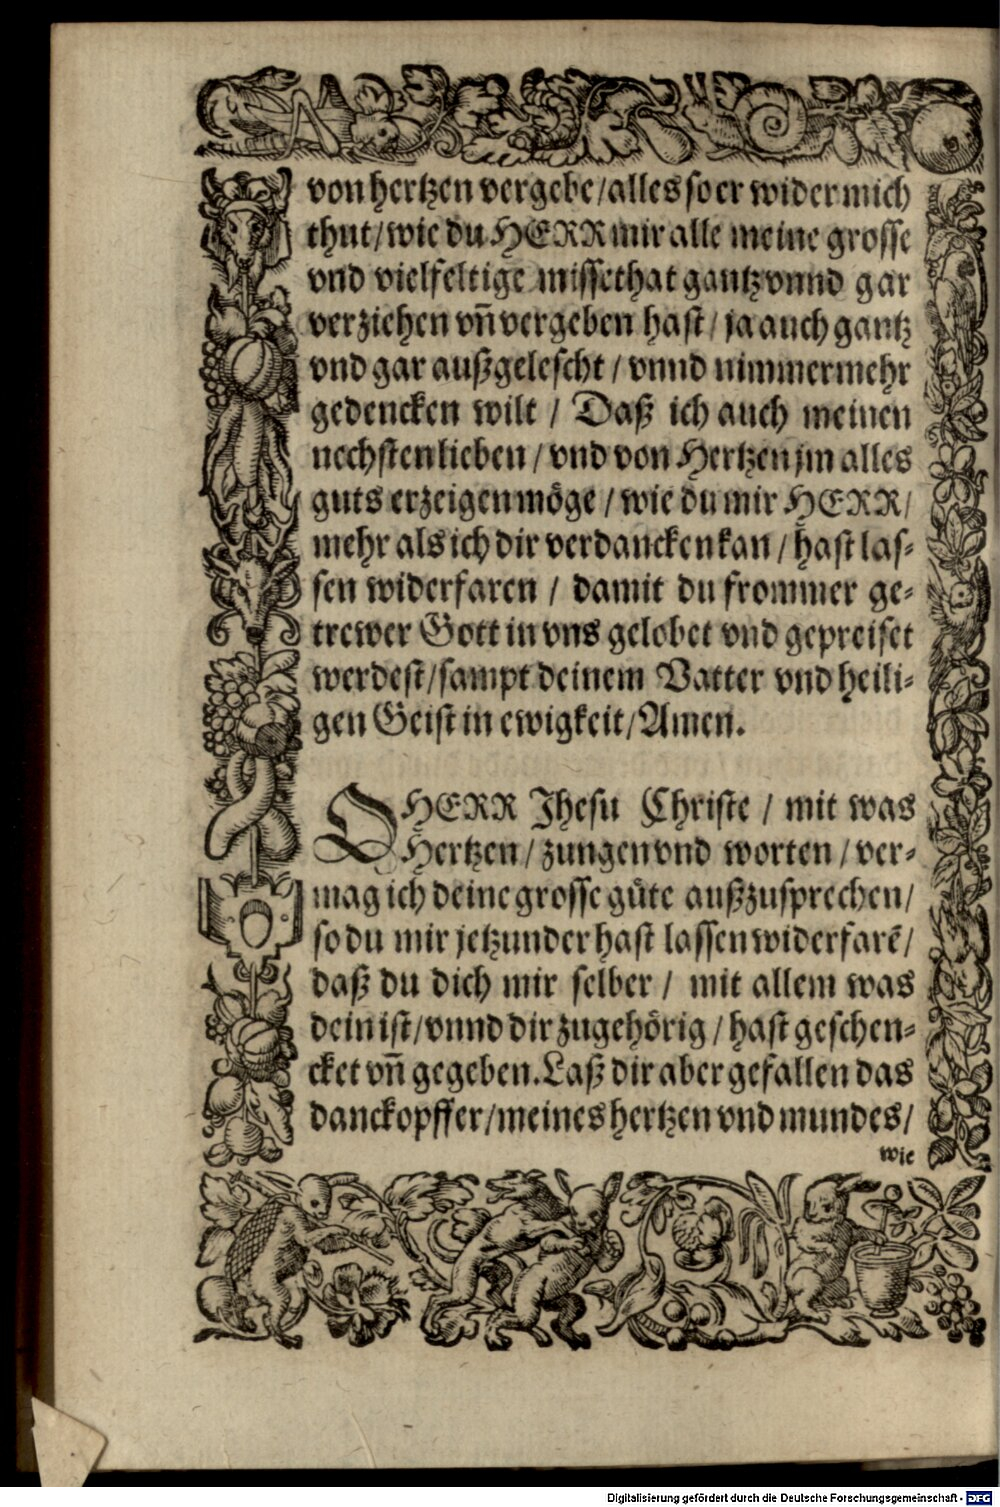 von hertzen vergebe/alles so er wider mich
thut/wie du HERR mir alle meine grosse
vnd vielfeltige missethat gantz vnnd gar
verziehen vn̄ vergeben hast/ ja auch gantz
vnd gar außgelescht / vnnd nimmermehr
gedencken wilt / Daß ich auch meinen
nechsten lieben / vnd von Hertzen jm alles
guts erzeigen möge / wie du mir HERR/
mehr als ich dir verdancken kan / hast las-
sen widerfaren / damit du frommer ge-
trewer Gott in vns gelobet vnd gepreiset
werdest/sampt deinem Vatter vnd heili-
gen Geist in ewigkeit/Amen.
O HERR Jhesu Christe / mit was
Hertzen/ zungen vnd worten / ver-
mag ich deine grosse güte außzusprechen/
so du mir jetzunder hast lassen widerfarē/
daß du dich mir selber / mit allem was
dein ist/vnnd dir zugehörig / hast geschen-
cket vn̄ gegeben. Laß dir aber gefallen das
danckopffer/meines hertzen vnd mundes/
wie
Digitalisierung gefördert durch die Deutsche Forschungsgemeinschaft - DFG